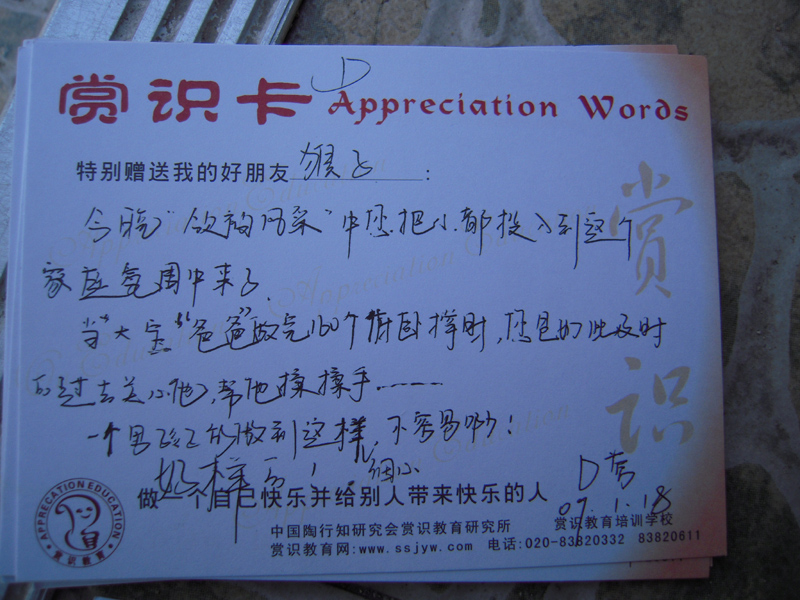 赏识卡 D Appreciation Words
特别赠送我的好朋友 猴子 :
今晚“领袖风采”中您把心都投入到这个
家庭氛围中来了.
当“大宝”“爸爸”做完160个俯卧撑时,您是如此及时
的过去关心他,帮他揉揉手……
一个男孩子的做到这样,不容易哟!
好样的! 细心
做一个自己快乐并给别人带来快乐的人
D营
07.1.18
赏识
APPRECATION EDUCATION
赏识教育
中国陶行知研究会赏识教育研究所 赏识教育培训学校
赏识教育网:www.ssjyw.com 电话:020-83820332 83820611